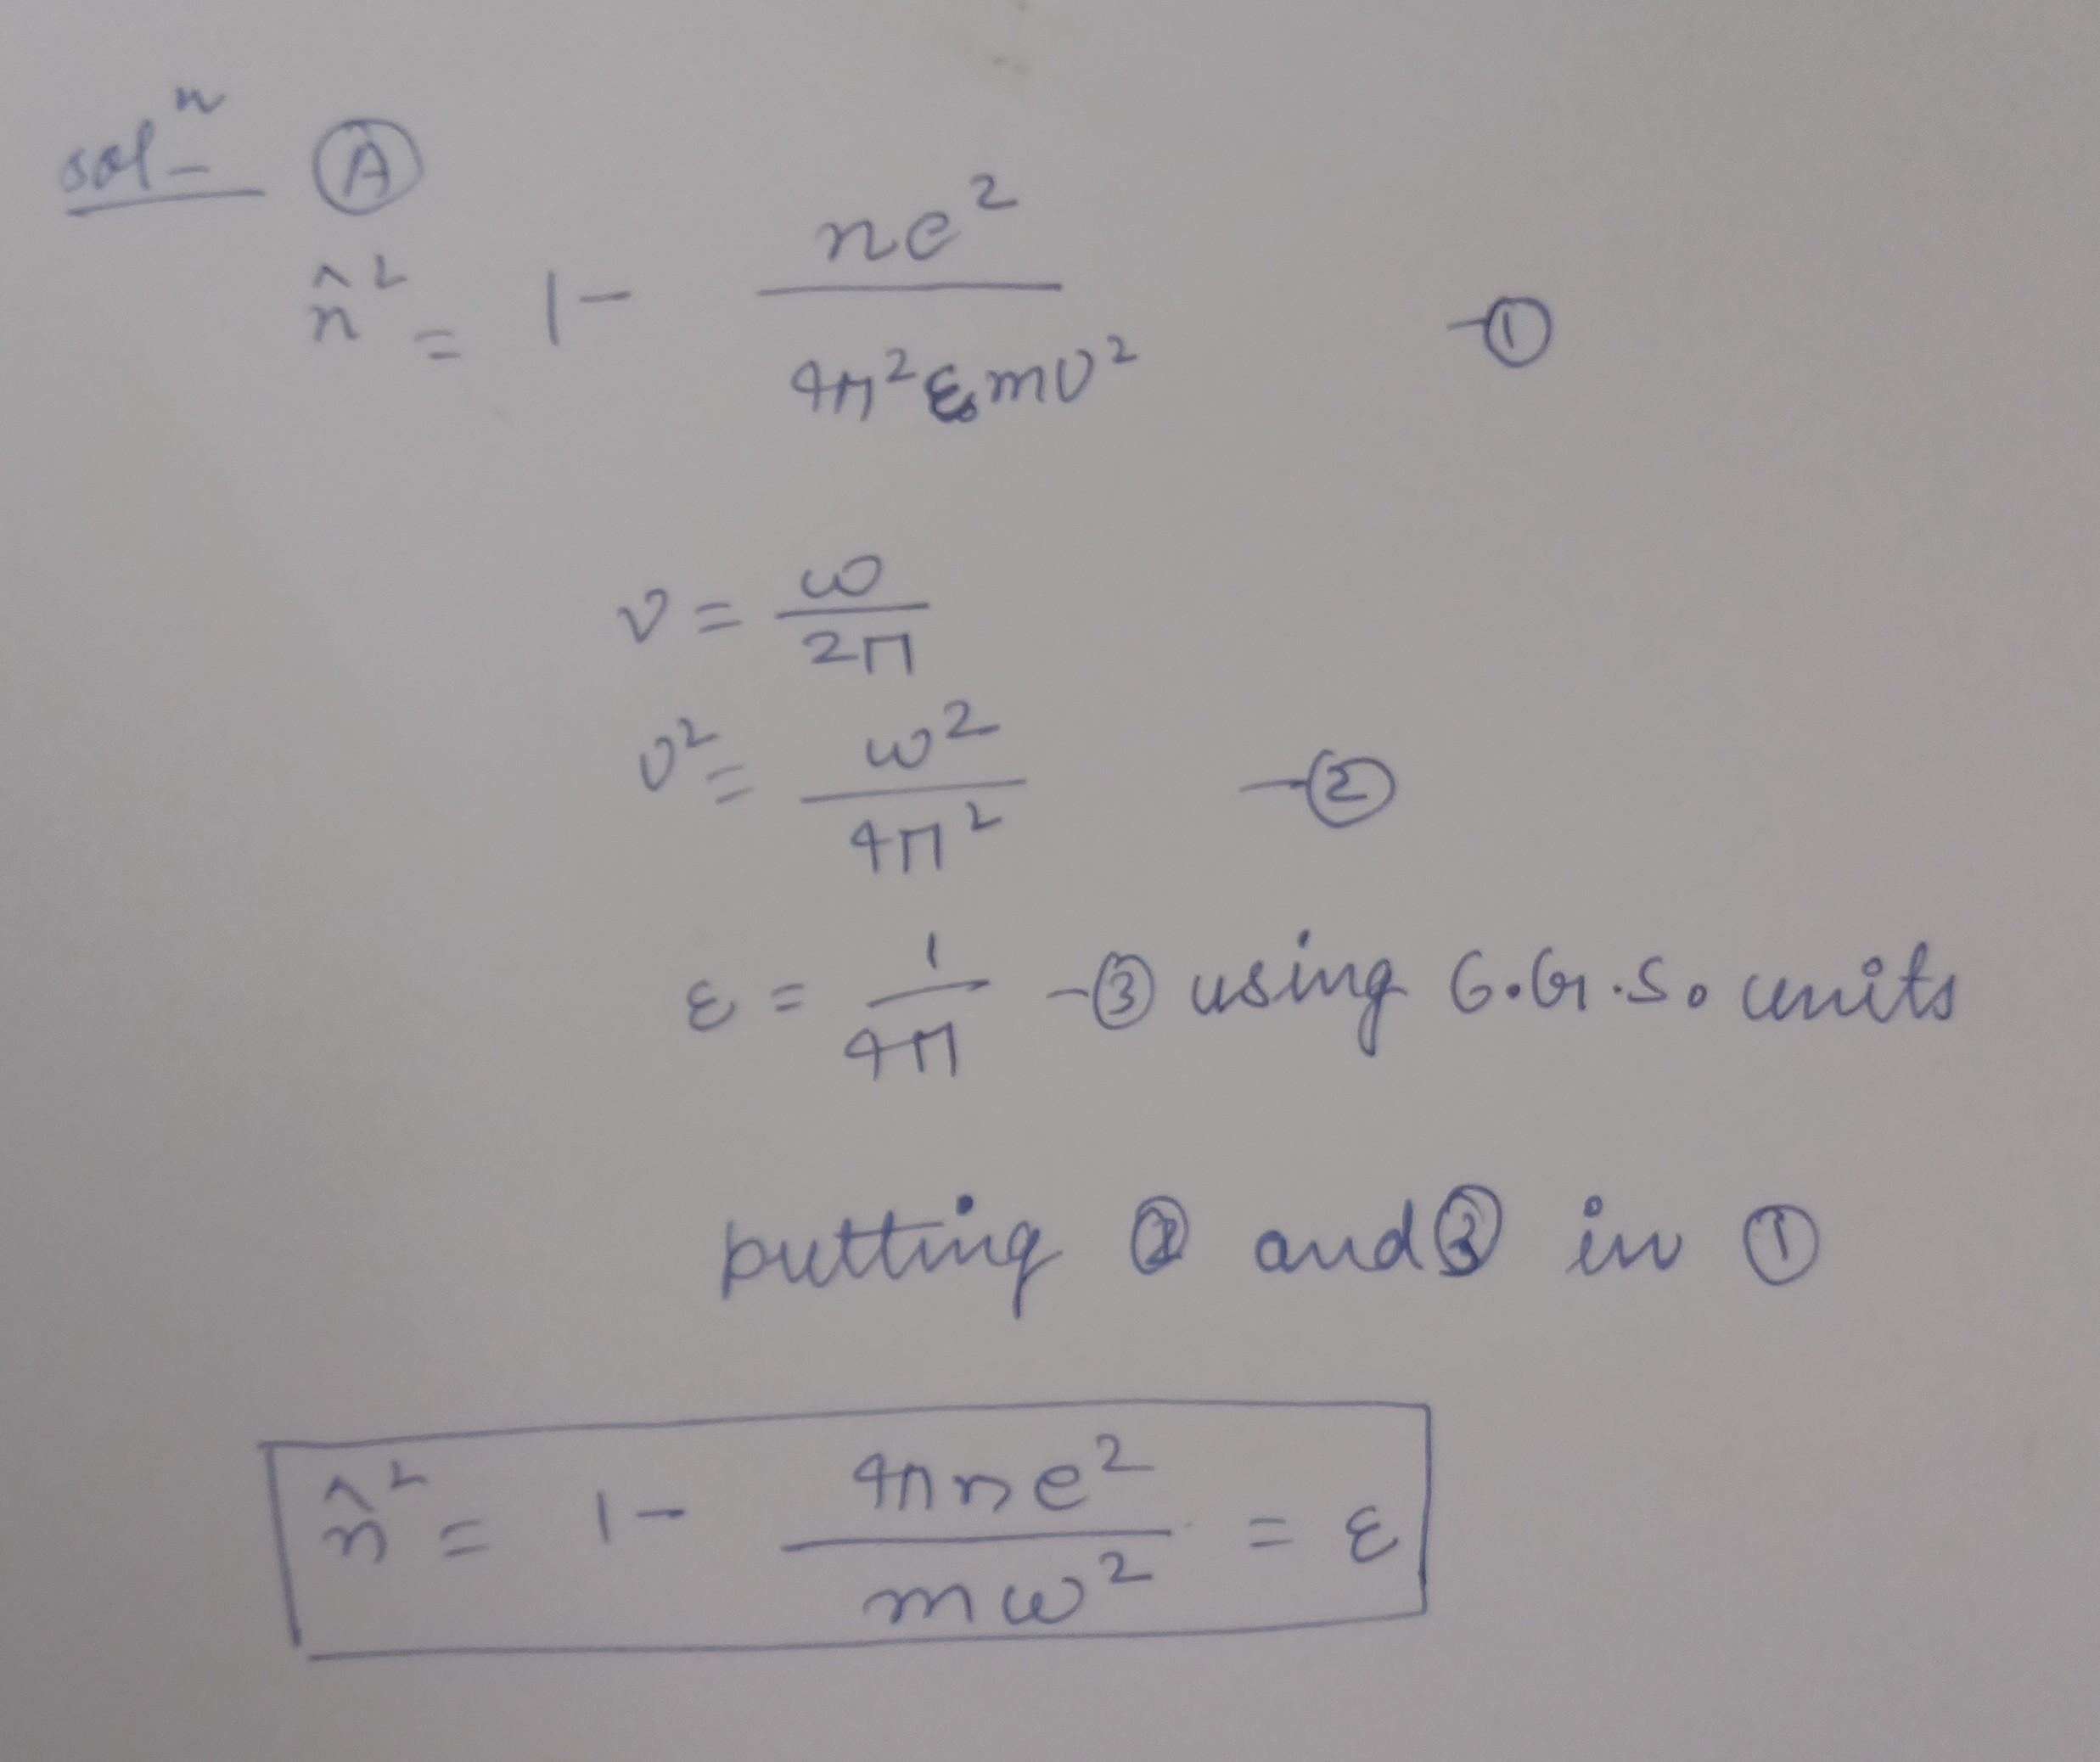 solⁿ Ⓐ
n̂² = 1 - ne² / 4π²ε₀mν² -①
ν = ω / 2π
ν² = ω² / 4π² -②
ε = 1 / 4π -③ using C.G.S. units
putting ② and ③ in ①
n̂² = 1 - 4πne² / mω² = ε